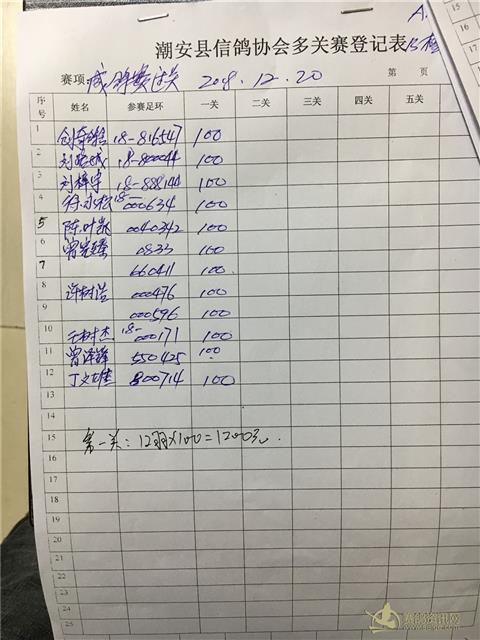 A.
潮安县信鸽协会多关赛登记表
赛项: 2018.12.20 第 页
序号 姓名 参赛足环 一关 二关 三关 四关 五关
1 18-816547 100
2 18-800044 100
3 刘梓宇 18-888144 100
4 18-000634 100
5 陈叶凯 0040342 100
6 0833 100
7 660411 100
8 许树浩 000476 100
9 000596 100
10 18-000171 100
11 曾泽锋 550425 100
12 丁文雄 800714 100
13
14
15 第一关: 12羽×100=1200元.
16
17
18
19
20
21
22
23
24
25